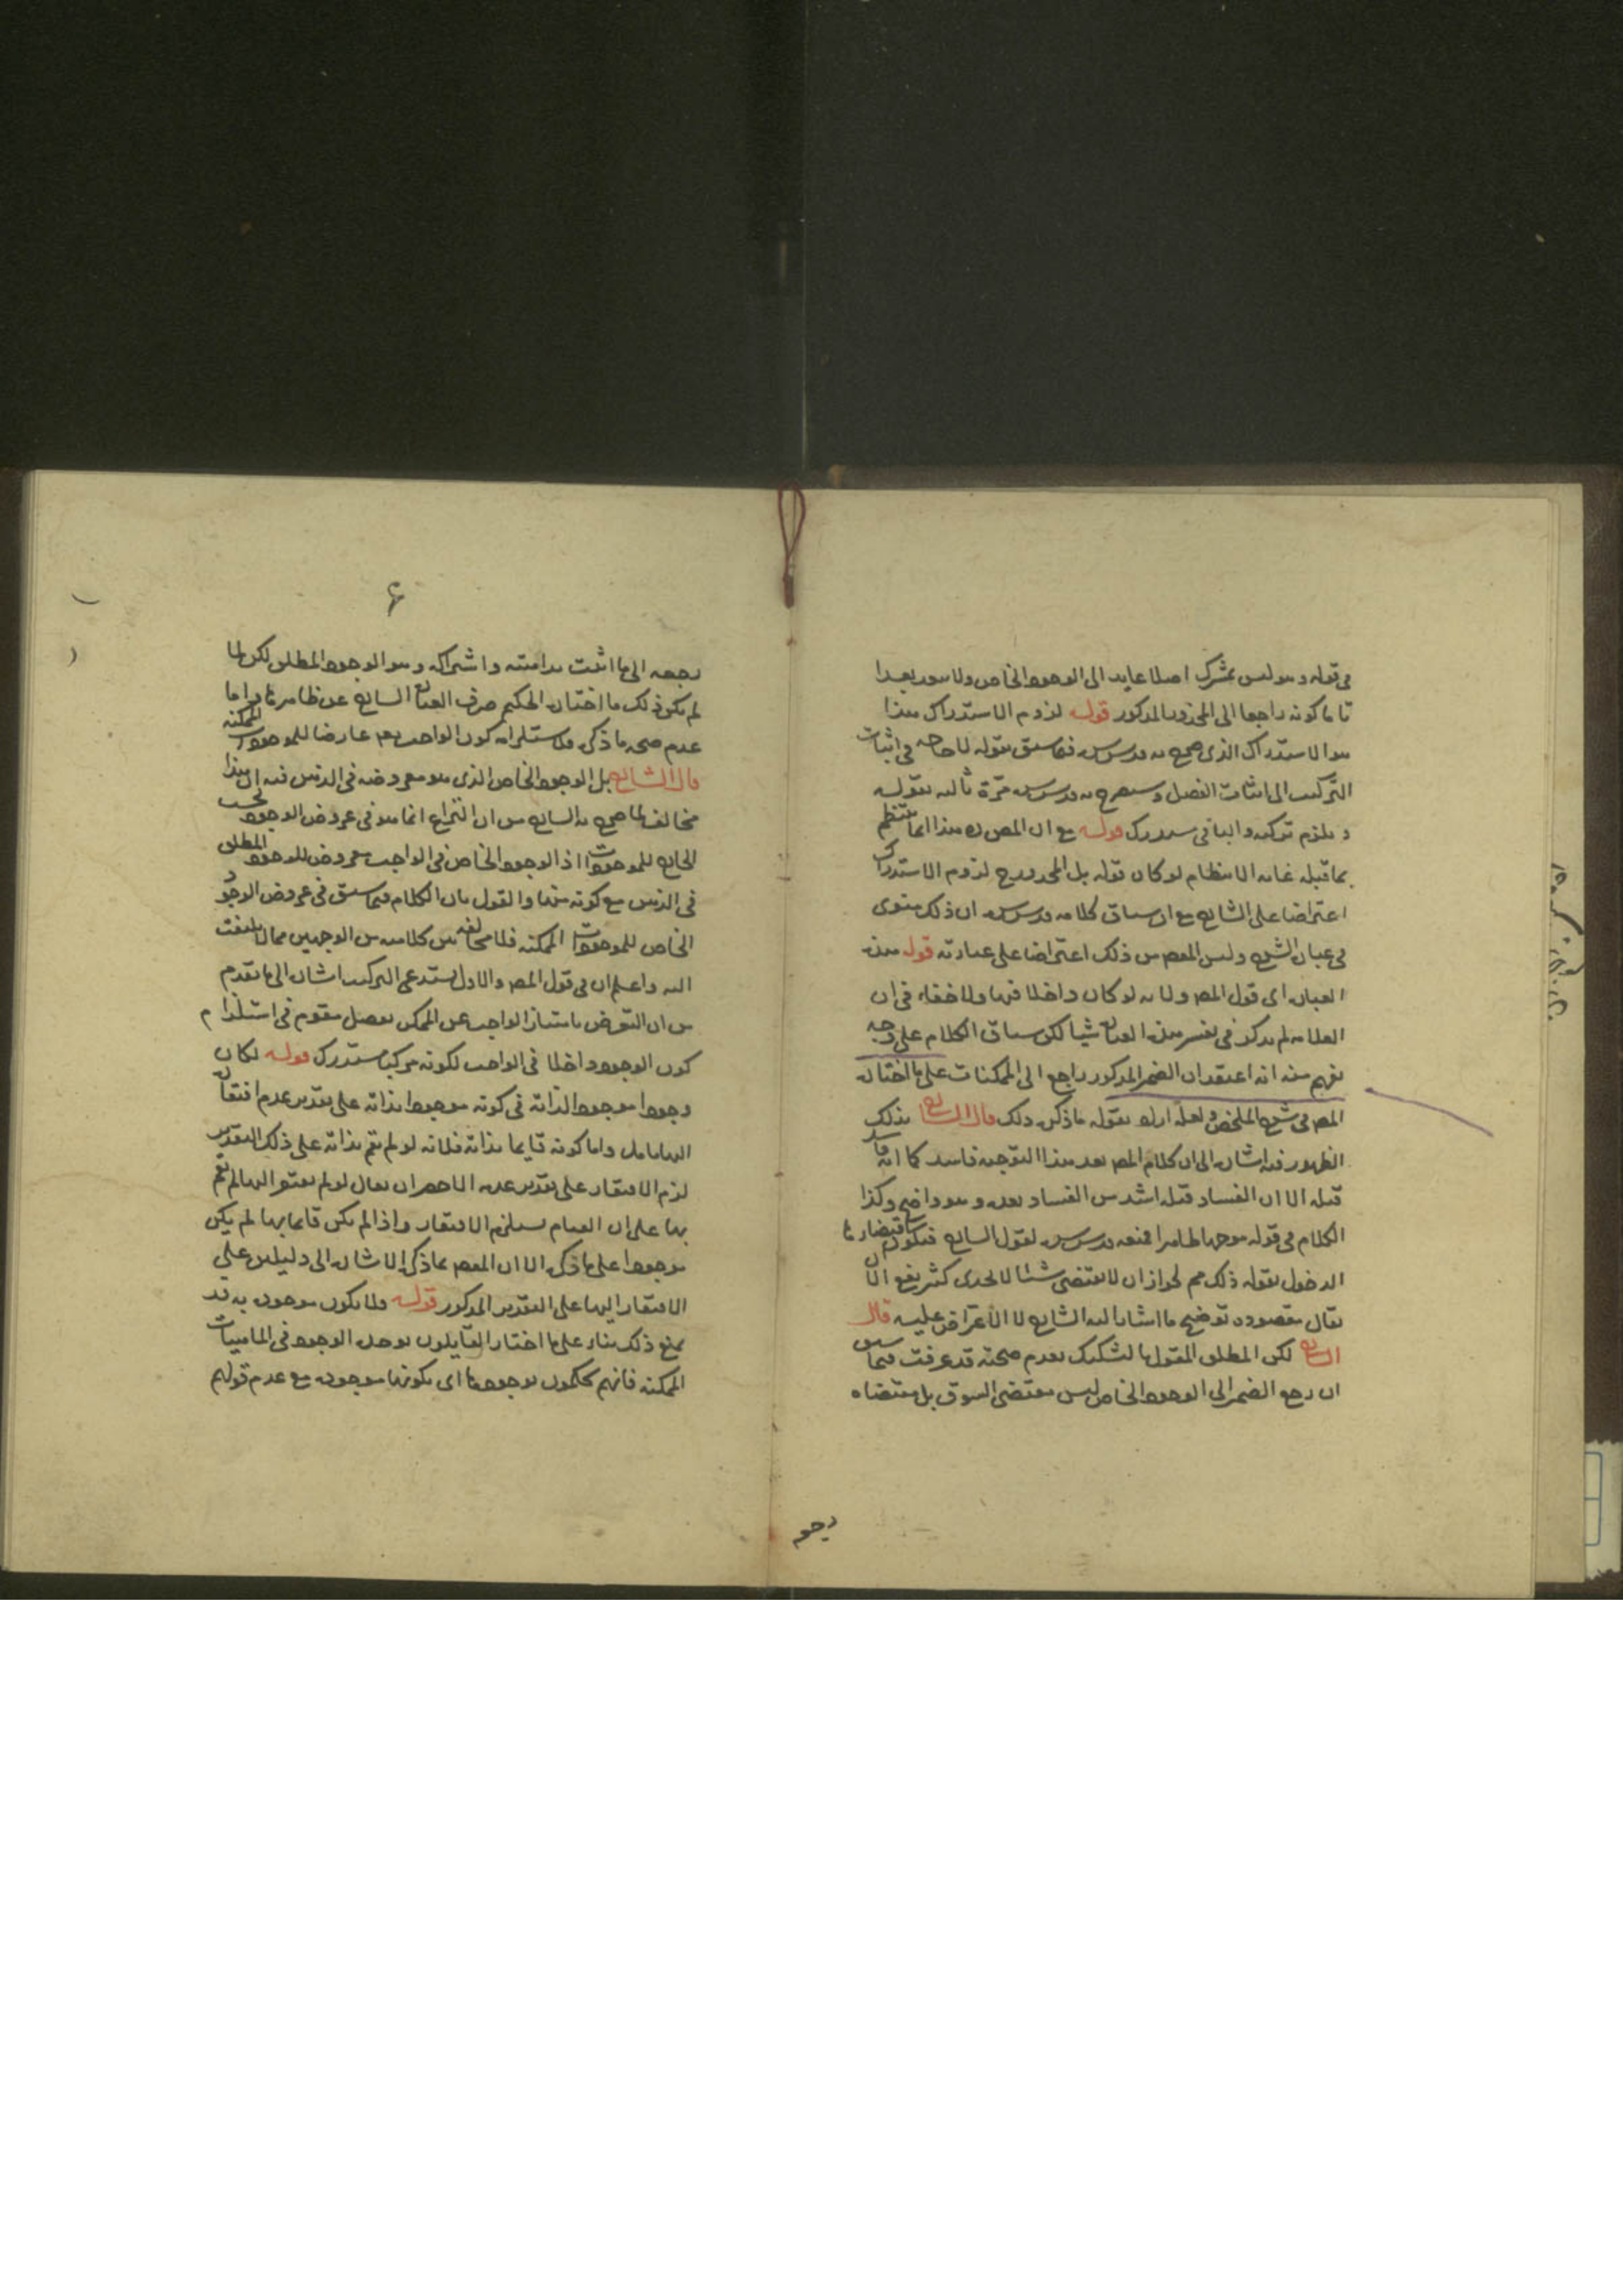 في قوله وهو ليس بمشترك اصلا عايد الى الوجود الخاص ولا سعد بعدا
تاما كونه راجعا الى المحذور المذكور قوله لزوم الاستدراك هذا
هو الاستدراك الذي صرح به قدس سره فيما سبق بقوله لا حاجة في اثبات
التركيب الى اثبات الفصل وسيصرح به قدس سره مرة ثانيه بقوله
ويلزم تركبه والباقي مستدرك قوله مع ان المص ره هذا انما ينتظم
بما قبله غاية الانتظام لو كان قوله بل المحذور ح لزوم الاستدراك
اعتراضا على الشارح مع ان سياق كلامه قدس سره ان ذلك منوى
في عبارة الشرح وليس المقصد من ذلك اعتراضا على عبارته قوله هذه
العبارة اى قول المص ولانه لو كان داخلا فيها ولا خفاء في ان
العلامه لم يذكر في تفسير هذه العبارة شيا لكن سياق الكلام على وجه
يفهم منه انه اعتقد ان الضمير المذكور راجع الى الممكنات على ما اختاره
المص في شرح الملخص ولعله اراد بقوله ما ذكره ذلك قال الشارح بذلك
الظهور فيه اشارة الى ان كلام المص بعد هذا التوجيه فاسد كما انه فاسد
قبله الا ان الفساد قبله اشد من الفساد بعده وهو واضح وكذا
الكلام في قوله موجها ظاهرا فمنعه قدس سره لقول الشارح فيكون اقتضاء ما
الدخول بقوله ذلك مم لجواز ان لا يقتضى شئا لا يجدى كثير نفع الا ان
يقال مقصوده توضيح ما اشار اليه الشارح لا الاعتراض عليه قال
الشارح لكن المطلق المقول بالتشكيك بعدم صحته قد عرفت فيما سبق
ان رجع الضمير الى الوجود الخاص ليس مقتضى السوق بل مقتضاه
رجعه
۶
رجعه الى ما اثبت بداهته واشتراكه وهو الوجود المطلق لكن لما
لم يكن ذلك ما اختاره الحكيم صرف العبارة الشارح عن ظاهرها واما
عدم صحة ما ذكره فلاستلزامه كون الواجب تعم عارضا للموجودات الممكنه
قال الشارح بل الوجود الخاص الذي هو معروضه في الذهن فيه ان هذا
مخالف لما صرح به الشارح من ان النزاع انما هو في عروض الوجود بحسب
الخارج للموجودات اذ الوجود الخاص في الواجب معروض للوجود المطلق
في الذهن مع كونه منها والقول بان الكلام فيما سبق في عروض الوجود
الخاص للموجودات الممكنه فلا مخالفة بين كلاميه من الوجهين مما لا يلتفت
اليه واعلم ان في قول المص والاول يستدعى التركيب اشارة الى ما تقدم
من ان التعرض بامتياز الواجب عن الممكن بفصل مقوم في استلزام
كون الوجود داخلا في الواجب لكونه مركبا مستدرك قوله لكان
وجودا موجودا لذاته في كونه موجودا بذاته على تقدير عدم افتقاره
اليها تامل واما كونه قايما بذاته فلانه لو لم يقم بذاته على ذلك التقدير
لزم الافتقار على تقدير عدمه الاخصر ان يقال لو لم يفتقر اليها لم يقم
بها على ان القيام يستلزم الافتقار واذا لم يكن قايما بها لم يكن
موجودا على ما ذكره الا ان المقصد بما ذكره الاشارة الى دليلين على
الافتقار اليها على التقدير المذكور قوله ولا يكون موجودة به قد
يمنع ذلك بناء على ما اختار القايلون بوحدة الوجود في الماهيات
الممكنه فانهم يحكمون بوجودها اى بكونها موجودة مع عدم قولهم